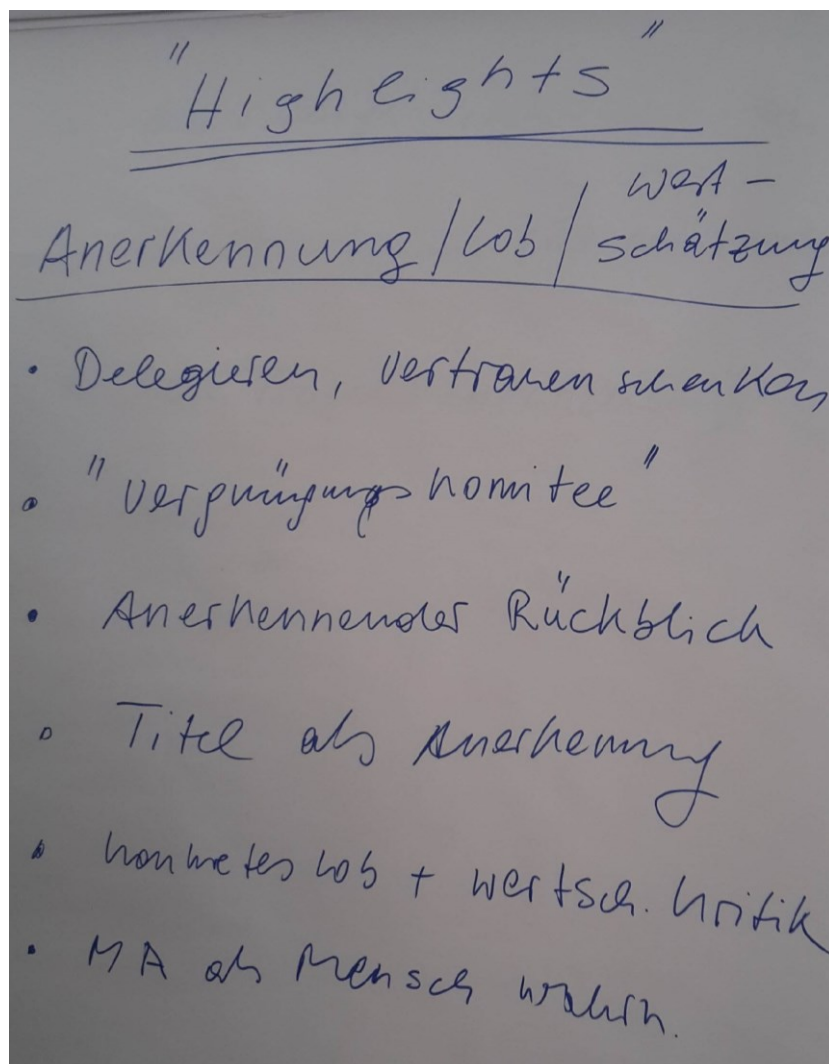 "Highlights"
Anerkennung / Lob / Wert-
schätzung
• Delegieren, Vertrauen schenken
• "Vergnügungskomitee"
• Anerkennender Rückblick
• Titel als Anerkennung
• Konkretes Lob + wertsch. Kritik
• MA als Mensch wahrn.